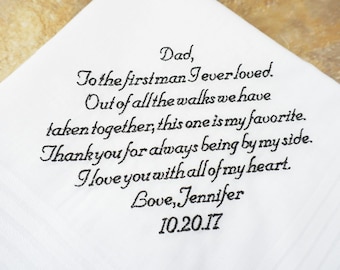 Dad,
To the first man I ever loved.
Out of all the walks we have
taken together, this one is my favorite.
Thank you for always being by my side.
I love you with all of my heart.
Love, Jennifer
10.20.17